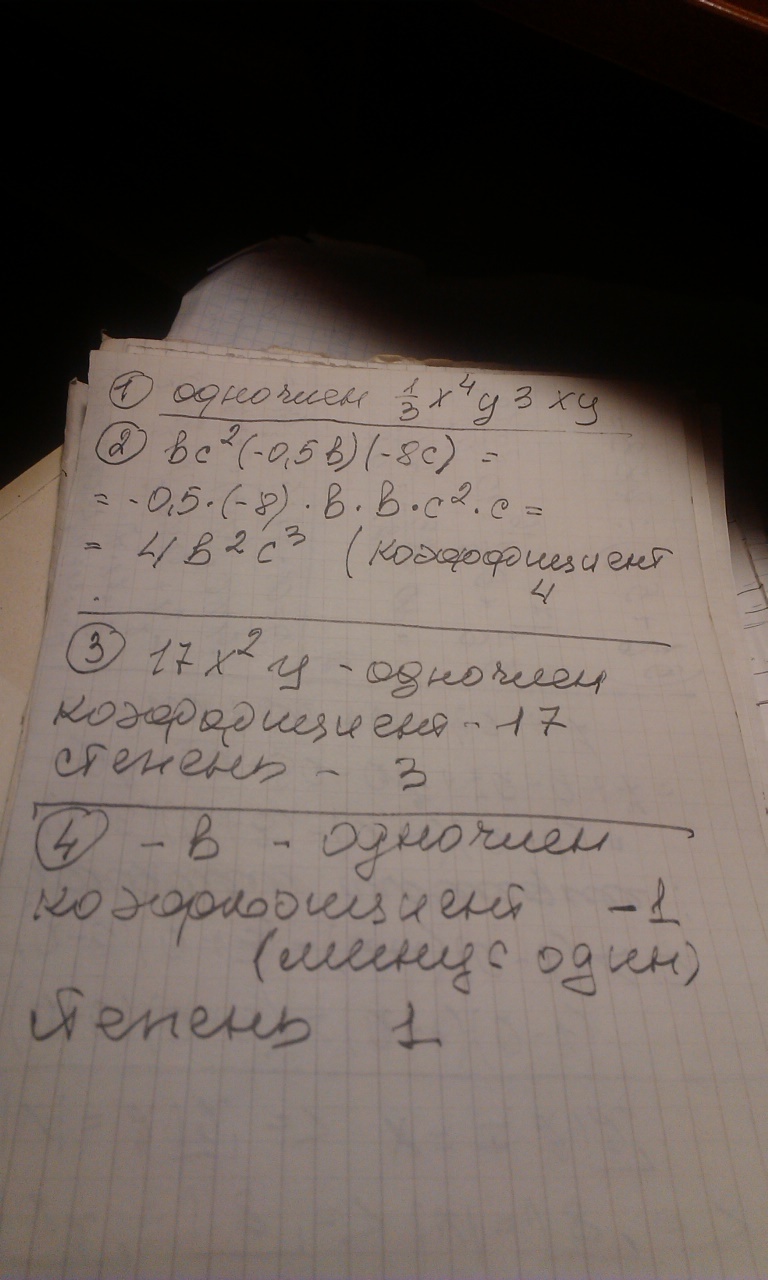 ① одночлен 1/3 x⁴y 3 xy
② вс²(-0,5в)(-8с) =
= -0,5·(-8)·в·в·с²·с =
= 4в²с³ (коэффициент
4
③ 17x²y - одночлен
коэффициент - 17
степень - 3
④ -в - одночлен
коэффициент -1
(минус один)
степень 1